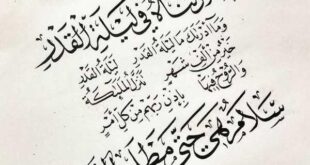 فِي لَيْلَةِ الْقَدْرِ
وَمَا أَدْرٰىكَ مَا لَيْلَةُ الْقَدْرِ لَيْلَةُ الْقَدْرِ
خَيْرٌ مِنْ أَلْفِ شَهْرٍ تَنَزَّلُ الْمَلٰئِكَةُ
وَالرُّوحُ فِيهَا
بِإِذْنِ رَبِّهِمْ مِنْ كُلِّ أَمْرٍ
سَلَامٌ هِيَ حَتَّى مَطْلَعِ